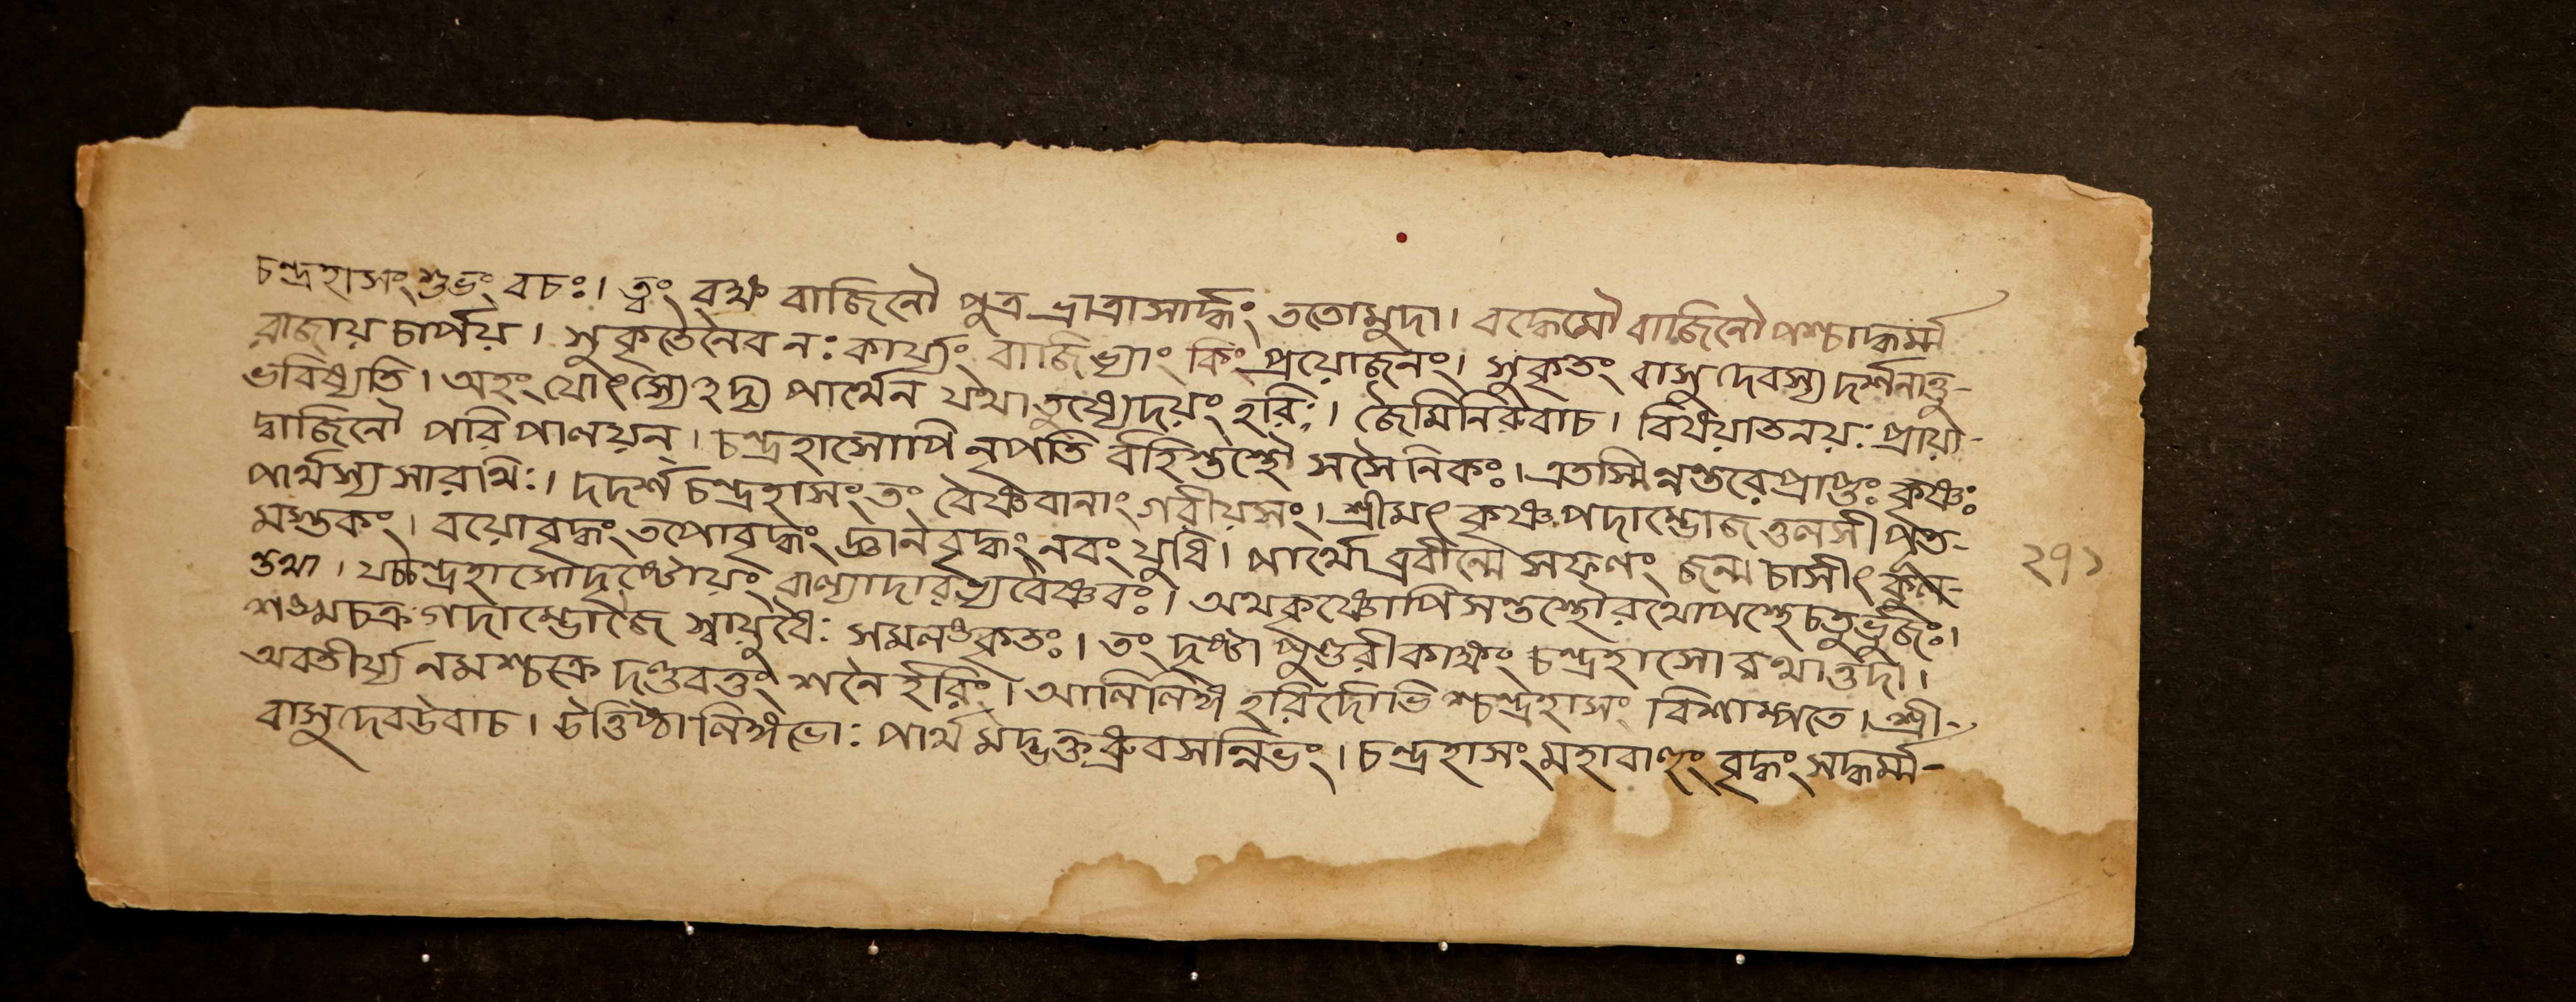 চন্দ্রহাসং শুভং বচঃ। ত্বং বক্ষ বাজিনৌ পুত্র ভ্রাত্রাসার্দ্ধং ততোমুদা। বদ্ধেমৌ বাজিনৌ পশ্চাদ্ধর্ম্ম
রাজায় চার্পয়। সুকৃতেনৈব নঃ কার্য্যং বাজিভ্যাং কিং প্রয়োজনং। সুকৃতং বাসুদেবস্য দর্শনাত্তু-
ভবিষ্যতি। অহং যোৎস্যেঽদ্য পার্থেন যথা তুষ্যেদয়ং হরিঃ। জৈমিনিরুবাচ। বিষয়াতনয়ঃ প্রায়া-
দ্বাজিনৌ পরিপালয়ন্। চন্দ্রহাসোপি নৃপতি র্বহিস্তস্থৌ সসৈনিকঃ। এতস্মিন্নন্তরেপ্রাপ্তঃ কৃষ্ণঃ
পার্থস্য সারথিঃ। দদর্শ চন্দ্রহাসং তং বৈষ্ণবানাং গরীয়সং। শ্রীমৎ কৃষ্ণপদাম্ভোজ তুলসীপত্র-
মস্তকং। বয়োবৃদ্ধং তপোবৃদ্ধং জ্ঞানবৃদ্ধং নবং যুধি। পার্থো ব্রবীন্মে সফলং জন্ম চাসীৎ কুল-
ন্তথা। যচ্চন্দ্রহাসোদৃষ্টোয়ং বাল্যাদারভ্য বৈষ্ণবঃ। অথকৃষ্ণোপি সন্তস্থৌরথোপস্থে চতুর্ভুজঃ।
শঙ্খচক্রগদাম্ভোজৈ স্বায়ুধৈঃ সমলঙ্কৃতঃ। তং দৃষ্ট্বা পুণ্ডরীকাক্ষং চন্দ্রহাসো রথাত্তদা।
অবতীর্য্য নমশ্চক্রে দণ্ডবত্তং শনৈ র্হরিং। আলিলিঙ্গ হরির্দোর্ভিশ্চন্দ্রহাসং বিশাম্পতে। শ্রী-
বাসুদেবউবাচ। উত্তিষ্ঠালিঙ্গভোঃ পার্থ মদ্ভক্তং ধ্রুবসন্নিভং। চন্দ্রহাসং মহাবাহুং বৃদ্ধং সদ্ধর্ম্ম-
২৭১